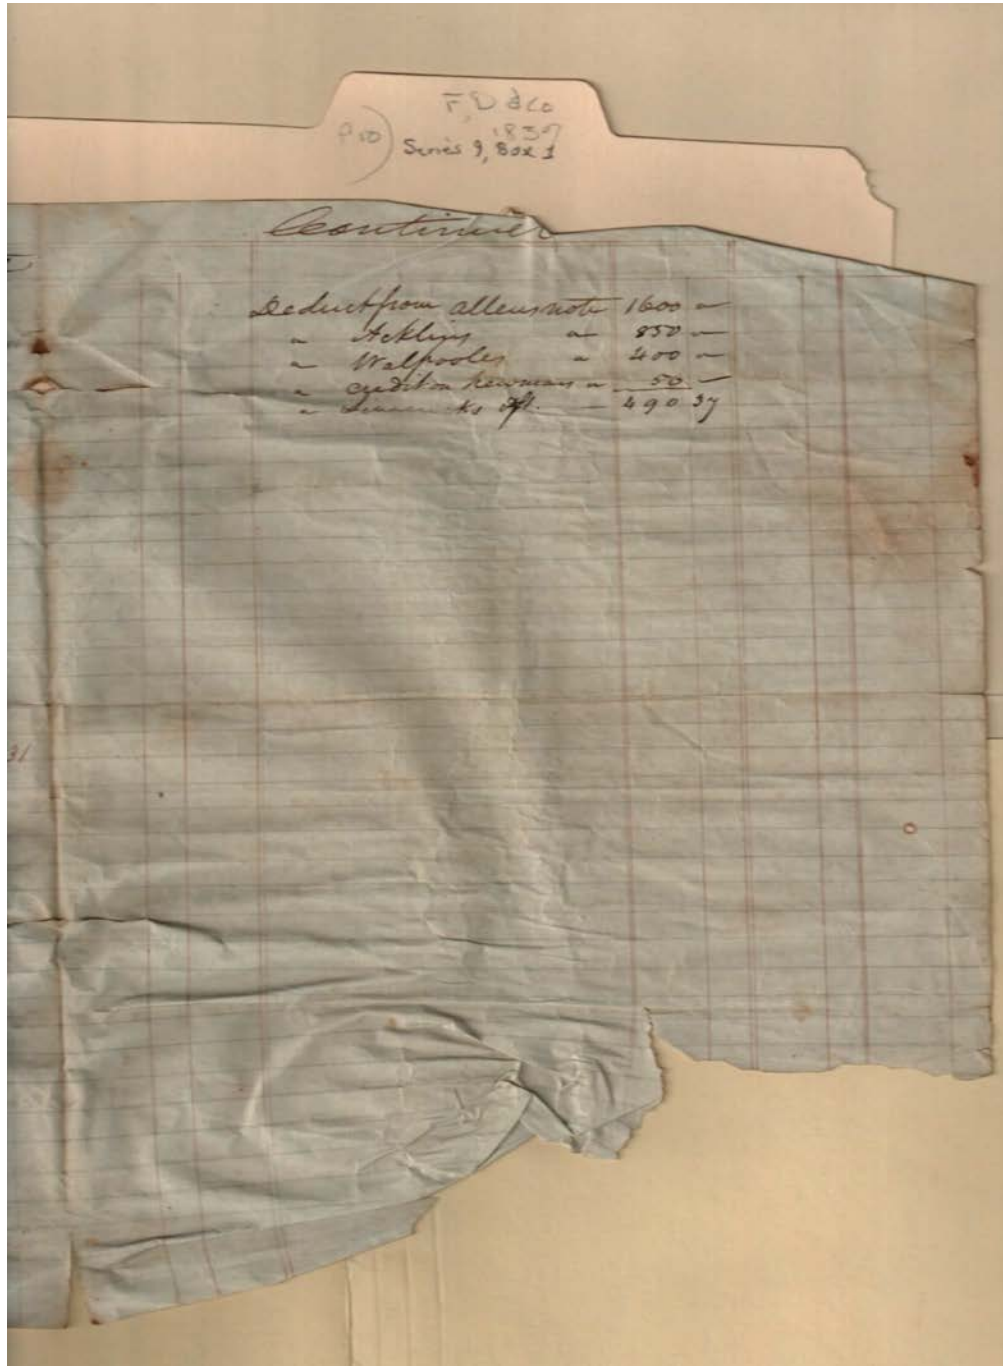 F, D & Co
1837
P10) Series 9, Box 1
Continued
Deduct from allens note 1600 "
" Acklins " 850 "
" Walpooles " 400 "
" credit on Newmans " 50 "
" ks dft. 490 37
31